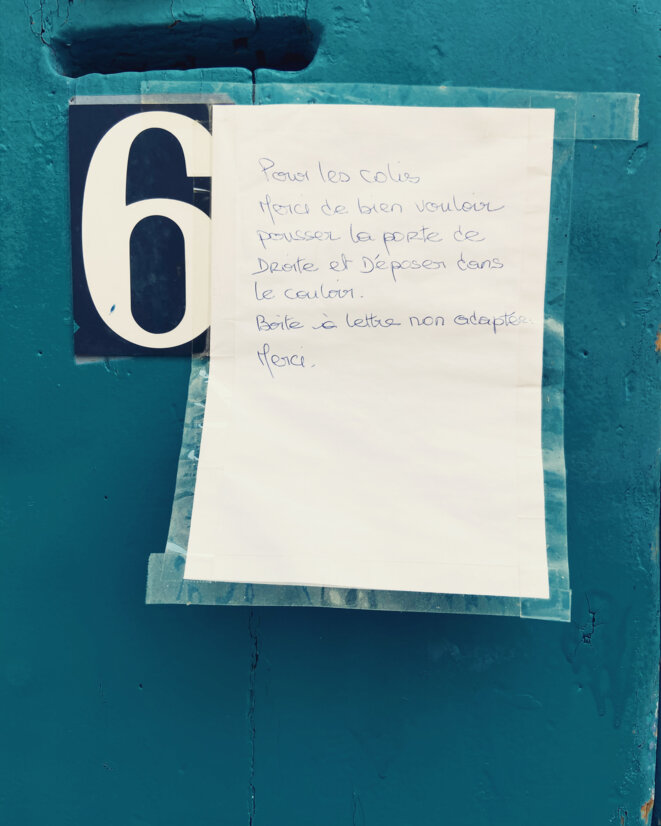 6
Pour les colis
Merci de bien vouloir
pousser la porte de
Droite et Déposer dans
le couloir.
Boite à lettre non adaptée.
Merci.